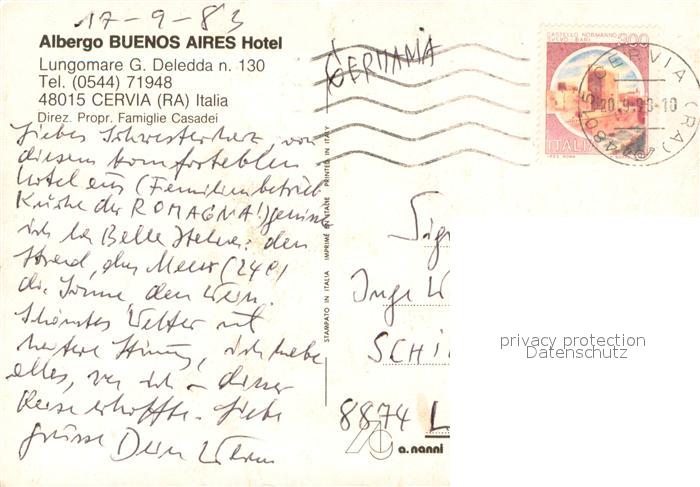 17-9-83
Albergo BUENOS AIRES Hotel
Lungomare G. Deledda n. 130
Tel. (0544) 71948
48015 CERVIA (RA) Italia
Direz. Propr. Famiglie Casadei
Liebes Schwesterherz, von
diesem komfortablen
Hotel aus (Familienbetrieb
Küche der ROMAGNA!) genieße
ich la Bella Italia: den
Strand, das Meer (24°)
die Sonne, den Wein.
Schönstes Wetter mit
heitere Stimmung, ich habe
alles, was ich dieser
Reise erhoffte. Liebe
Grüsse Dein
GERMANIA
CASTELLO NORMANNO
SVEVO - BARI
300
ITALIA
CERVIA (RA)
48015
STAMPATO IN ITALIA IMPRIMÉ EN ITALIE PRINTED IN ITALY
Sig
Inge W
SCHI
8874 L
a. nanni
privacy protection
Datenschutz